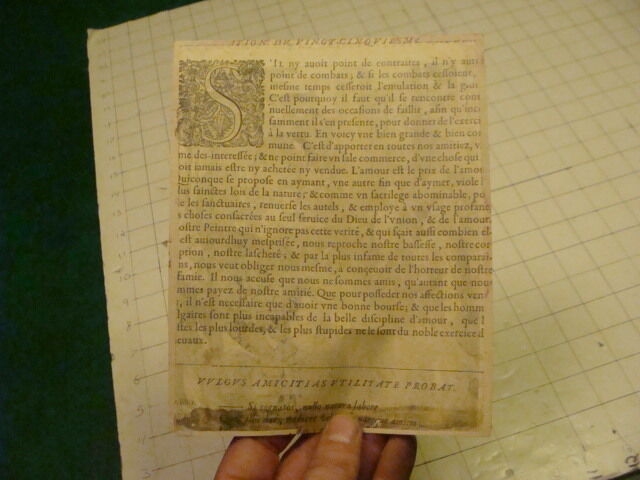 ITION DE VINGT-CINQVIESME
S'IL ny auoit point de contraires, il n'y auro
point de combats; & si les combats cessoient,
mesme temps cesseroit l'emulation & la
C'est pourquoy il faut qu'il se rencontre cont
nuellement des occasions de faillir, afin qu'inces
samment il s'en presente, pour donner de l'exerci
à la vertu. En voicy vne bien grande & bien com
mune. C'est d'apporter en toutes nos amitiez, v
me des-interessée; & ne point faire vn sale commerce, d'vne chose qui
oit iamais estre ny achetée ny vendue. L'amour est le prix de l'amou
Quiconque se propose en aymant, vne autre fin que d'aymer, viole l
lus sainctes lois de la nature; & comme vn sacrilege abominable, po
le les sanctuaires, renuerse les autels, & employe à vn vsage profane
s choses consacrées au seul seruice du Dieu de l'vnion, & de l'amour.
ostre Peintre qui n'ignore pas cette verité, & qui sçait aussi combien el
est auiourdhuy mesprisée, nous reproche nostre bassesse, nostre cor
ption, nostre lascheté; & par la plus infame de toutes les comparai-
ns, nous veut obliger nous mesme, à conçeuoir de l'horreur de nostre
famie. Il nous accuse que nous ne sommes amis, qu'autant que nous
mmes payez de nostre amitié. Que pour posseder nos affections ven
s, il n'est necessaire que d'auoir vne bonne bourse; & que les homm
lgaires sont plus incapables de la belle discipline d'amour, que l
stes les plus lourdes, & les plus stupides ne le sont du noble exercice d
euaux.
VVLGVS AMICITIAS VTILITATE PROBAT.
Si cognatos, nullo natura labore